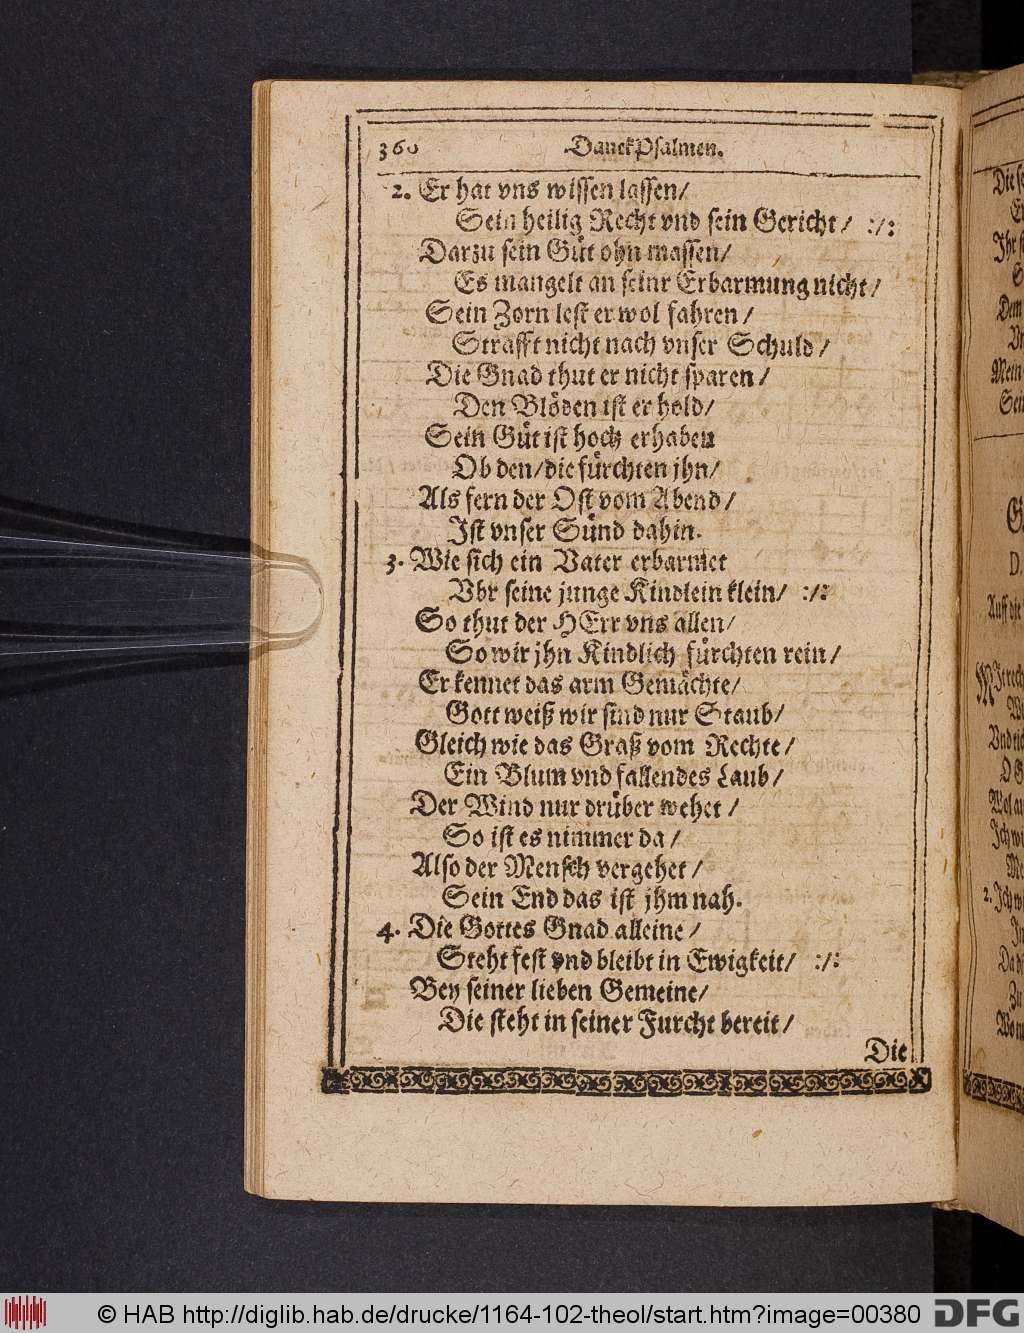 360 DanckPsalmen.
2. Er hat vns wissen lassen/
Sein heilig Recht vnd sein Gericht/ :/:
Darzu sein Güt ohn massen/
Es mangelt an seinr Erbarmung nicht/
Sein Zorn lest er wol fahren/
Strafft nicht nach vnser Schuld/
Die Gnad thut er nicht sparen/
Den Blöden ist er hold/
Sein Güt ist hoch erhaben
Ob den/die fürchten jhn/
Als fern der Ost vom Abend/
Ist vnser Sünd dahin.
3. Wie sich ein Vater erbarmet
Vbr seine junge Kindlein klein/ :/:
So thut der HErr vns allen/
So wir jhn Kindlich fürchten rein/
Er kennet das arm Gemächte/
Gott weiß wir sind nur Staub/
Gleich wie das Graß vom Rechte/
Ein Blum vnd fallendes Laub/
Der Wind nur drüber wehet/
So ist es nimmer da/
Also der Mensch vergehet/
Sein End das ist jhm nah.
4. Die Gottes Gnad alleine/
Steht fest vnd bleibt in Ewigkeit/ :/:
Bey seiner lieben Gemeine/
Die steht in seiner Furcht bereit/
Die
Dem
Mein
Auff die
2. Ich
© HAB http://diglib.hab.de/drucke/1164-102-theol/start.htm?image=00380 DFG